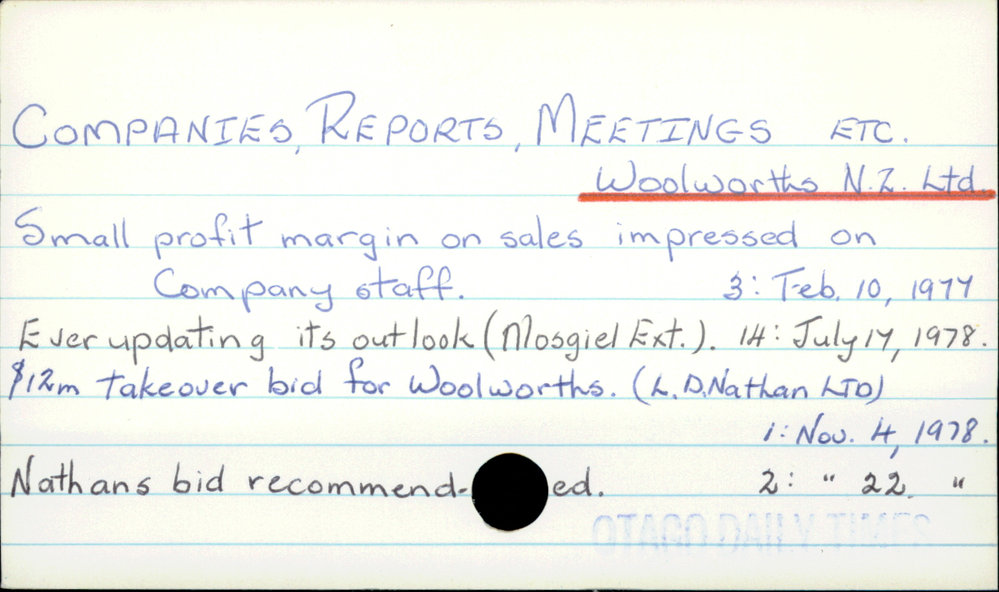 COMPANIES, REPORTS, MEETINGS ETC.
Woolworths N.Z. Ltd.
Small profit margin on sales impressed on
Company staff. 3: Feb. 10, 1977
Ever updating its outlook (Mosgiel Ext.). 14: July 17, 1978.
$12m takeover bid for Woolworths. (L.D.Nathan LTD)
1: Nov. 4, 1978.
Nathans bid recommend-ed. 2: " 22. "
OTAGO DAILY TIMES